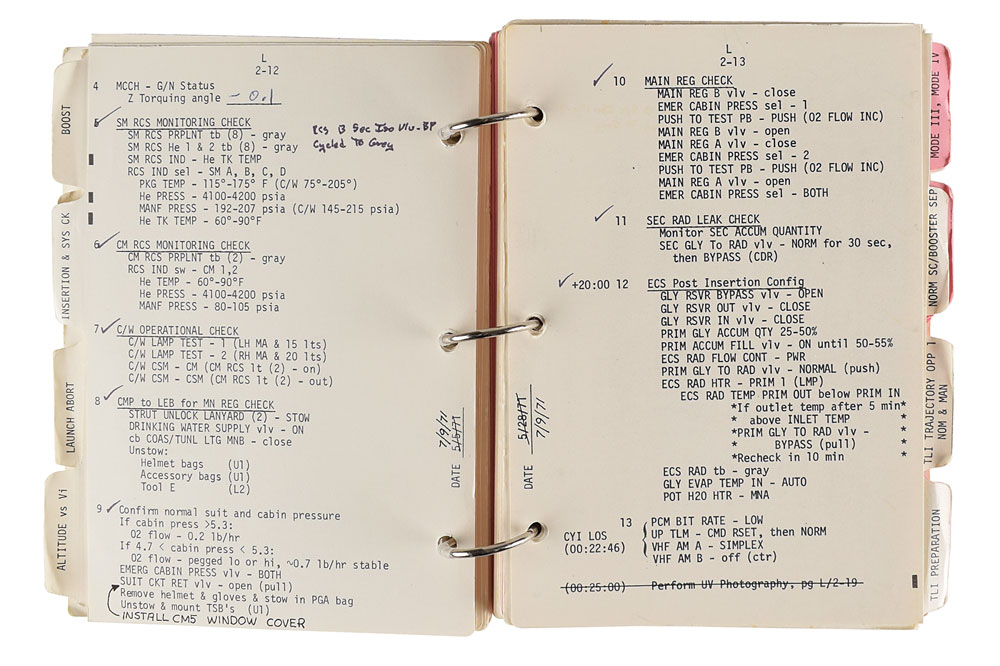 BOOST
INSERTION & SYS CK
LAUNCH ABORT
ALTITUDE vs Vi
L
2-12
4 MCCH - G/N Status
Z Torquing angle - 0.1
5 SM RCS MONITORING CHECK
SM RCS PRPLNT tb (8) - gray
SM RCS He 1 & 2 tb (8) - gray
SM RCS IND - He TK TEMP
RCS IND sel - SM A, B, C, D
PKG TEMP - 115°-175° F (C/W 75°-205°)
He PRESS - 4100-4200 psia
MANF PRESS - 192-207 psia (C/W 145-215 psia)
He TK TEMP - 60°-90°F
RCS B Sec Iso Vlv-BP
Cycled To Grey
6 CM RCS MONITORING CHECK
CM RCS PRPLNT tb (2) - gray
RCS IND sw - CM 1,2
He TEMP - 60°-90°F
He PRESS - 4100-4200 psia
MANF PRESS - 80-105 psia
7 C/W OPERATIONAL CHECK
C/W LAMP TEST - 1 (LH MA & 15 lts)
C/W LAMP TEST - 2 (RH MA & 20 lts)
C/W CSM - CM (CM RCS lt (2) - on)
C/W CSM - CSM (CM RCS lt (2) - out)
8 CMP to LEB for MN REG CHECK
STRUT UNLOCK LANYARD (2) - STOW
DRINKING WATER SUPPLY vlv - ON
cb COAS/TUNL LTG MNB - close
Unstow:
Helmet bags (U1)
Accessory bags (U1)
Tool E (L2)
9 Confirm normal suit and cabin pressure
If cabin press >5.3:
O2 flow - 0.2 lb/hr
If 4.7 < cabin press < 5.3:
O2 flow - pegged lo or hi, ~0.7 lb/hr stable
EMERG CABIN PRESS vlv - BOTH
SUIT CKT RET vlv - open (pull)
Remove helmet & gloves & stow in PGA bag
Unstow & mount TSB's (U1)
INSTALL CM5 WINDOW COVER
DATE 5/5/71
7/9/71
L
2-13
10 MAIN REG CHECK
MAIN REG B vlv - close
EMER CABIN PRESS sel - 1
PUSH TO TEST PB - PUSH (O2 FLOW INC)
MAIN REG B vlv - open
MAIN REG A vlv - close
EMER CABIN PRESS sel - 2
PUSH TO TEST PB - PUSH (O2 FLOW INC)
MAIN REG A vlv - open
EMER CABIN PRESS sel - BOTH
11 SEC RAD LEAK CHECK
Monitor SEC ACCUM QUANTITY
SEC GLY To RAD vlv - NORM for 30 sec,
then BYPASS (CDR)
+20:00 12 ECS Post Insertion Config
GLY RSVR BYPASS vlv - OPEN
GLY RSVR OUT vlv - CLOSE
GLY RSVR IN vlv - CLOSE
PRIM GLY ACCUM QTY 25-50%
PRIM ACCUM FILL vlv - ON until 50-55%
ECS RAD FLOW CONT - PWR
PRIM GLY TO RAD vlv - NORMAL (push)
ECS RAD HTR - PRIM 1 (LMP)
ECS RAD TEMP PRIM OUT below PRIM IN
*If outlet temp after 5 min*
* above INLET TEMP *
*PRIM GLY TO RAD vlv - *
* BYPASS (pull) *
*Recheck in 10 min *
ECS RAD tb - gray
GLY EVAP TEMP IN - AUTO
POT H2O HTR - MNA
13 PCM BIT RATE - LOW
CYI LOS UP TLM - CMD RSET, then NORM
(00:22:46) VHF AM A - SIMPLEX
VHF AM B - off (ctr)
(00:25:00) Perform UV Photography, pg L/2-19
DATE 5/28/71
7/9/71
MODE III, MODE IV
NORM SC/BOOSTER SEP
TLI TRAJECTORY OPP 1
NOM & MAN
TLI PREPARATION